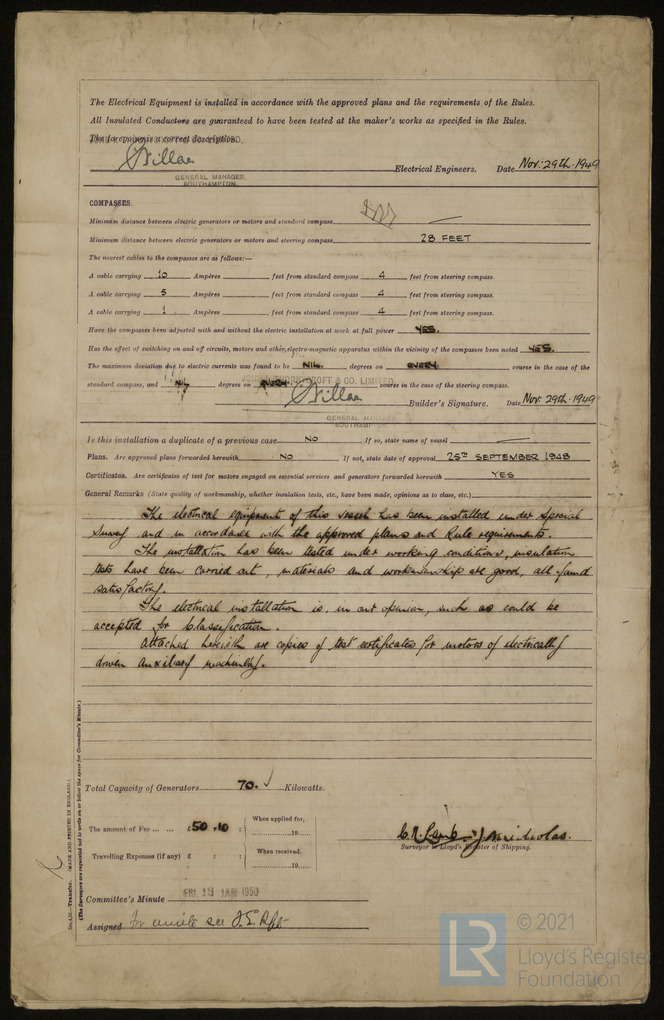 The Electrical Equipment is installed in accordance with the approved plans and the requirements of the Rules.
All Insulated Conductors are guaranteed to have been tested at the maker's works as specified in the Rules.
The foregoing is a correct description.
Electrical Engineers. Date Nov: 29th. 1949
GENERAL MANAGER.
SOUTHAMPTON.
COMPASSES.
Minimum distance between electric generators or motors and standard compass —
Minimum distance between electric generators or motors and steering compass 28 FEET
The nearest cables to the compasses are as follows:—
A cable carrying 10 Ampères feet from standard compass 4 feet from steering compass.
A cable carrying 5 Ampères feet from standard compass 4 feet from steering compass.
A cable carrying 1 Ampères feet from standard compass 4 feet from steering compass.
Have the compasses been adjusted with and without the electric installation at work at full power YES.
Has the effect of switching on and off circuits, motors and other electro-magnetic apparatus within the vicinity of the compasses been noted YES.
The maximum deviation due to electric currents was found to be NIL degrees on EVERY course in the case of the
THORNYCROFT & CO. LIMITED
standard compass, and NIL degrees on EVERY course in the case of the steering compass.
Builder's Signature. Date Nov: 29th. 1949
GENERAL MANAGER
SOUTHAMPTON
Is this installation a duplicate of a previous case NO If so, state name of vessel —
Plans. Are approved plans forwarded herewith NO If not, state date of approval 25TH SEPTEMBER 1948
Certificates. Are certificates of test for motors engaged on essential services and generators forwarded herewith YES
General Remarks (State quality of workmanship, whether insulation tests, etc., have been made, opinions as to class, etc.)
The electrical equipment of this vessel has been installed under Special
Survey and in accordance with the approved plans and Rule requirements.
The installation has been tested under working conditions, insulation
tests have been carried out, materials and workmanship are good, all found
satisfactory.
The electrical installation is, in our opinion, such as could be
accepted for Classification.
Attached herewith are copies of test certificates for motors of electrically
driven auxiliary machinery.
Total Capacity of Generators 70. Kilowatts.
The amount of Fee ... ... £50 . 10 :
When applied for,
19
Travelling Expenses (if any) £ : :
When received.
19
Surveyor to Lloyd's Register of Shipping.
Committee's Minute FRI. 13 JAN 1950
Assigned
Transfer. (MADE AND PRINTED IN ENGLAND.)
(The Surveyors are requested not to write on or below the space for Committee's Minute.)
LR
© 2021
Lloyd's Register
Foundation